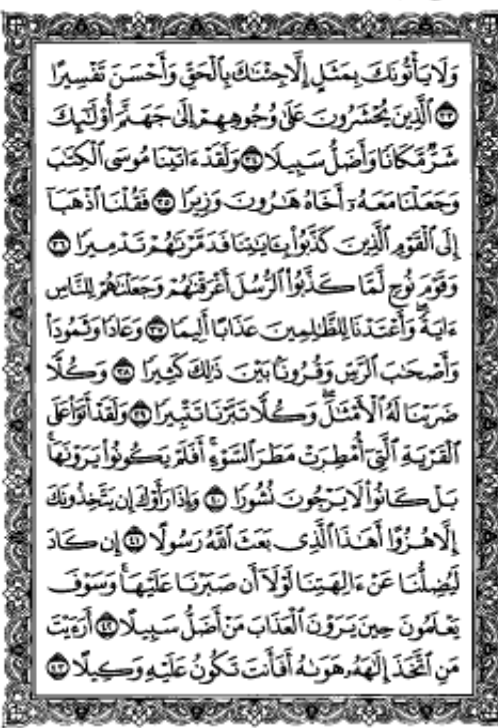 وَلَا يَأْتُونَكَ بِمَثَلٍ إِلَّا جِئْنَٰكَ بِالْحَقِّ وَأَحْسَنَ تَفْسِيرًا
٣٣ الَّذِينَ يُحْشَرُونَ عَلَىٰ وُجُوهِهِمْ إِلَىٰ جَهَنَّمَ أُوْلَٰٓئِكَ
شَرٌّ مَّكَانًا وَأَضَلُّ سَبِيلًا ٣٤ وَلَقَدْ ءَاتَيْنَا مُوسَى الْكِتَٰبَ
وَجَعَلْنَا مَعَهُۥٓ أَخَاهُ هَٰرُونَ وَزِيرًا ٣٥ فَقُلْنَا اذْهَبَآ
إِلَى الْقَوْمِ الَّذِينَ كَذَّبُوا۟ بِـَٔايَٰتِنَا فَدَمَّرْنَٰهُمْ تَدْمِيرًا ٣٦
وَقَوْمَ نُوحٍ لَّمَّا كَذَّبُوا۟ الرُّسُلَ أَغْرَقْنَٰهُمْ وَجَعَلْنَٰهُمْ لِلنَّاسِ
ءَايَةً ۖ وَأَعْتَدْنَا لِلظَّٰلِمِينَ عَذَابًا أَلِيمًا ٣٧ وَعَادًا وَثَمُودَا۟
وَأَصْحَٰبَ الرَّسِّ وَقُرُونًۢا بَيْنَ ذَٰلِكَ كَثِيرًا ٣٨ وَكُلًّا
ضَرَبْنَا لَهُ الْأَمْثَٰلَ ۖ وَكُلًّا تَبَّرْنَا تَتْبِيرًا ٣٩ وَلَقَدْ أَتَوْا۟ عَلَى
الْقَرْيَةِ الَّتِىٓ أُمْطِرَتْ مَطَرَ السَّوْءِ ۚ أَفَلَمْ يَكُونُوا۟ يَرَوْنَهَا ۚ
بَلْ كَانُوا۟ لَا يَرْجُونَ نُشُورًا ٤٠ وَإِذَا رَأَوْكَ إِن يَتَّخِذُونَكَ
إِلَّا هُزُوًا أَهَٰذَا الَّذِى بَعَثَ اللَّهُ رَسُولًا ٤١ إِن كَادَ
لَيُضِلُّنَا عَنْ ءَالِهَتِنَا لَوْلَآ أَن صَبَرْنَا عَلَيْهَا ۚ وَسَوْفَ
يَعْلَمُونَ حِينَ يَرَوْنَ الْعَذَابَ مَنْ أَضَلُّ سَبِيلًا ٤٢ أَرَءَيْتَ
مَنِ اتَّخَذَ إِلَٰهَهُۥ هَوَىٰهُ أَفَأَنتَ تَكُونُ عَلَيْهِ وَكِيلًا ٤٣